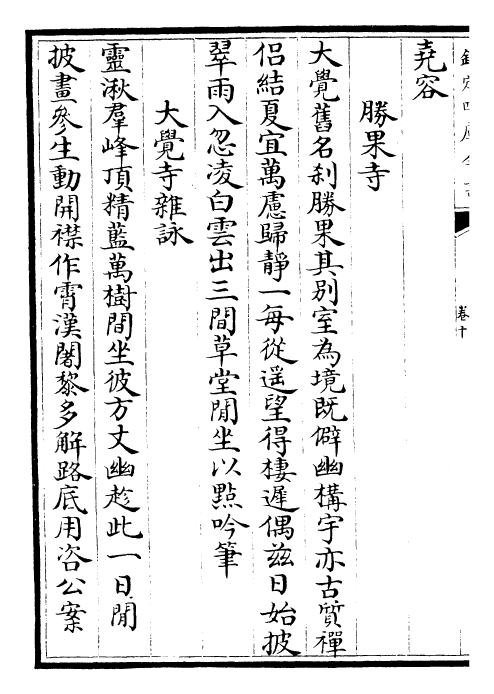 欽定四庫全書
卷十
堯容
勝果寺
大覺舊名刹勝果其别室為境既僻幽構宇亦古質禪
侣結夏宜萬慮歸靜一每從遥望得棲遲偶兹日始披
翠雨入忽凌白雲出三間草堂閒坐以點吟筆
大覺寺雜詠
靈湫羣峰頂精藍萬樹間坐彼方丈幽趁此一日閒
披畫參生動開襟作霄漢闍黎多解路底用咨公案